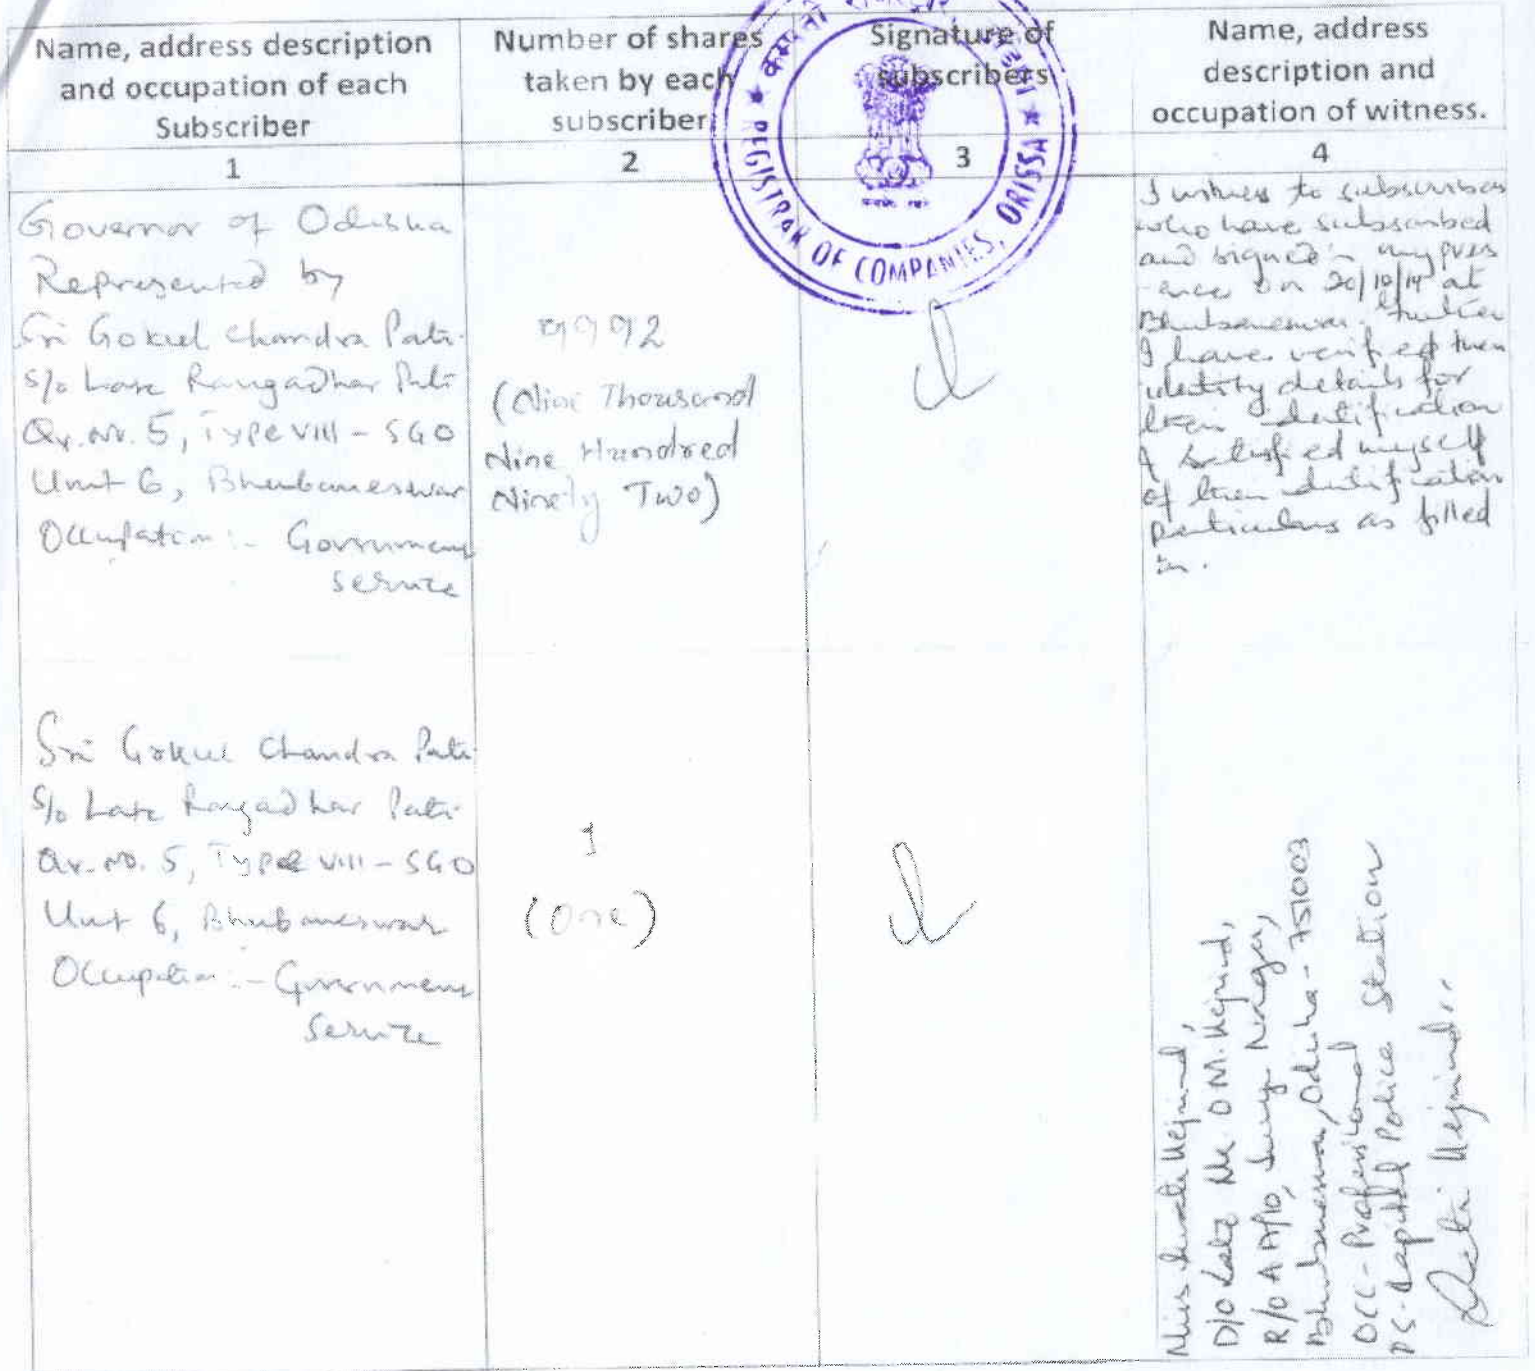 Name, address description
and occupation of each
Subscriber
Number of shares
taken by each
subscriber
Signature of
subscribers
Name, address
description and
occupation of witness.
1
2
3
4
REGISTRAR OF COMPANIES, ORISSA
Governor of Odisha
Represented by
Sri Gokul Chandra Pati
S/o Late Rangadhar Pati
Qr. No. 5, Type VIII - SGO
Unit 6, Bhubaneswar
Occupation :- Government
service
9992
(Nine Thousand
Nine Hundred
Ninety Two)
I witness to subscribers
who have subscribed
and signed in my pres
-ence on 20/10/14 at
Bhubaneswar. Further
I have verified their
identity details for
their identification
& satisfied myself
of their identification
particulars as filled
in.
Sri Gokul Chandra Pati
S/o Late Rangadhar Pati
Qr. No. 5, Type VIII - SGO
Unit 6, Bhubaneswar
Occupation :- Government
Service
1
(One)
Miss
D/o Late Mr. O M.
R/o A
Nagar,
Bhubaneswar, Odisha - 751003
Occ - Professional
PS - Capital Police Station